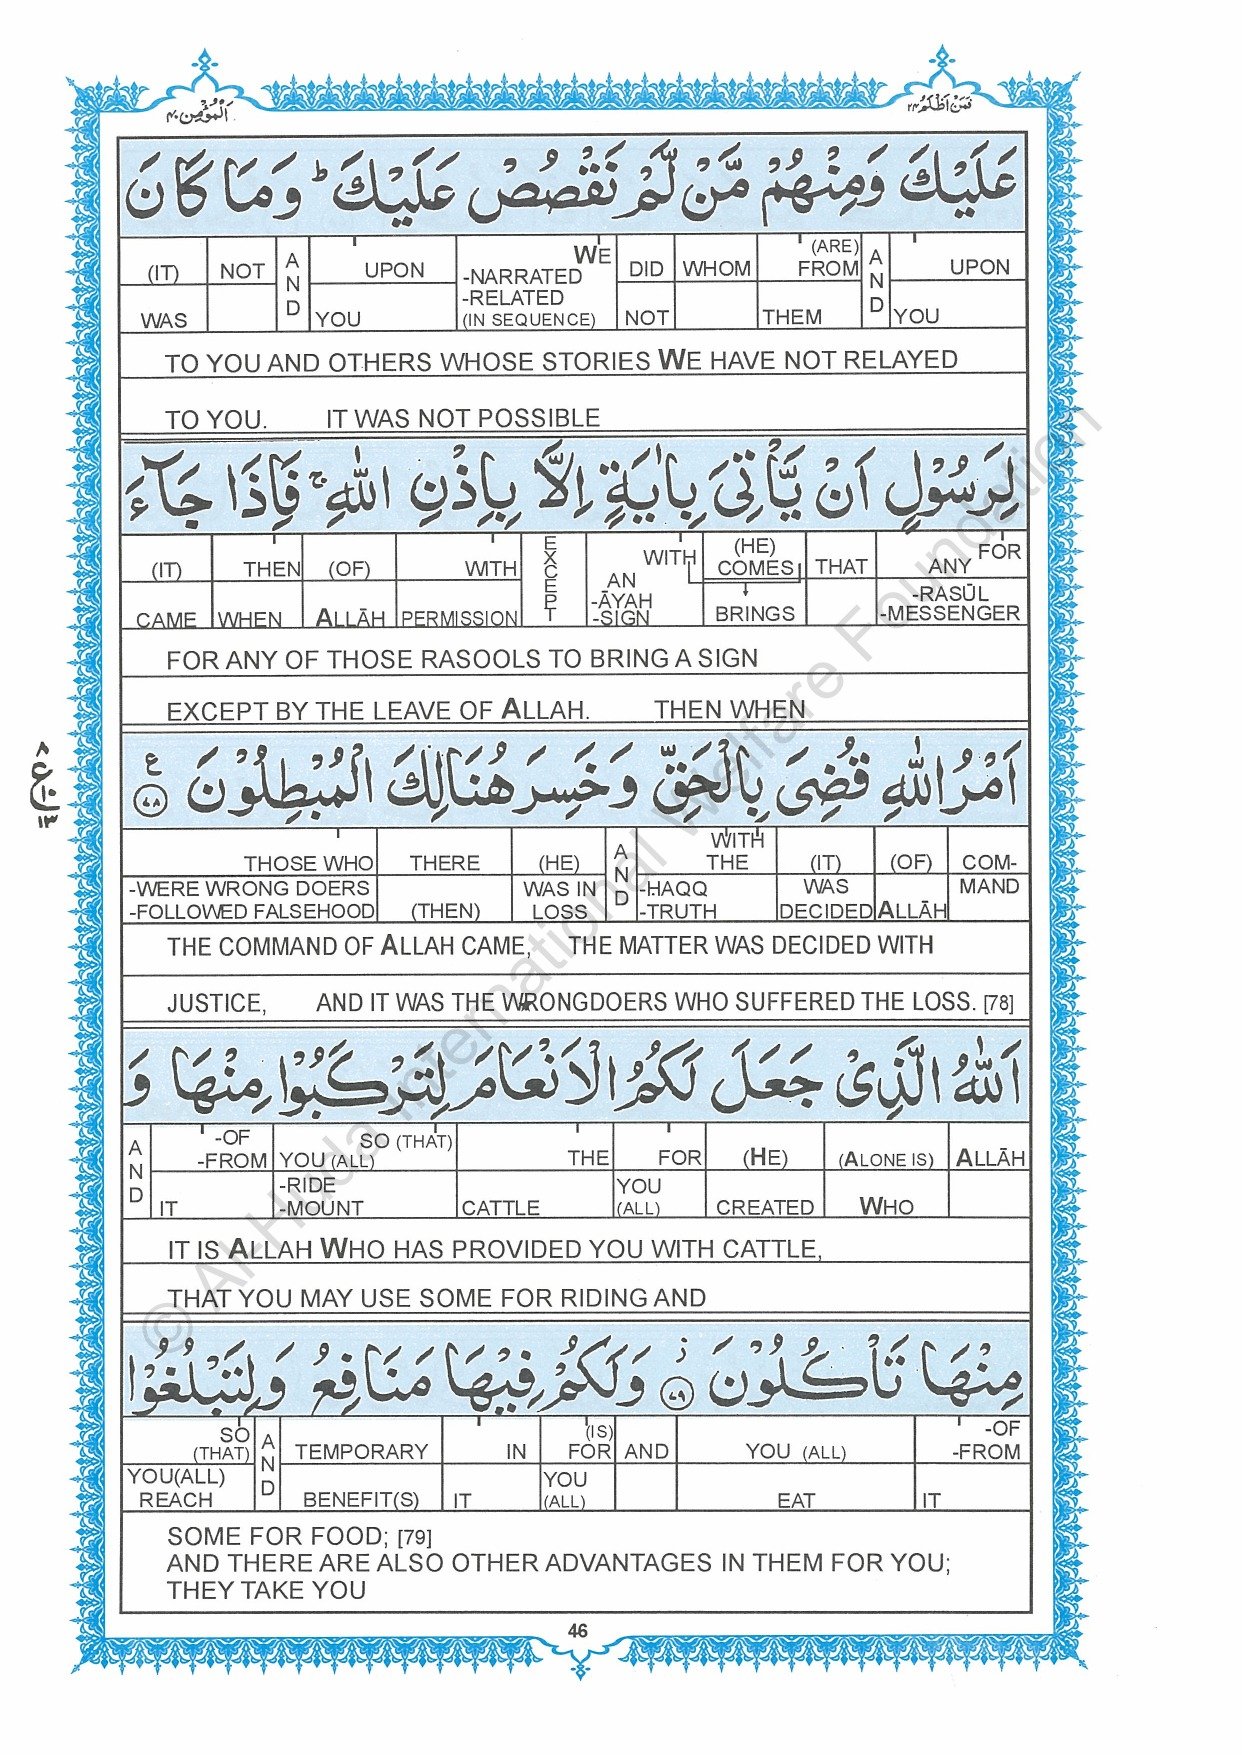 اَلْمُؤْمِن ٤٠
فَمَنْ اَظْلَمُ ٢٤
عَلَيْكَ وَمِنْهُمْ مَّنْ لَّمْ نَقْصُصْ عَلَيْكَ ؕ وَمَا كَانَ
UPON YOU | AND | (ARE) FROM THEM | WHOM | DID NOT | WE -NARRATED -RELATED (IN SEQUENCE) | UPON YOU | AND | NOT | (IT) WAS
TO YOU AND OTHERS WHOSE STORIES WE HAVE NOT RELAYED
TO YOU. IT WAS NOT POSSIBLE
لِرَسُوْلٍ اَنْ يَّاْتِىَ بِاٰيَةٍ اِلَّا بِاِذْنِ اللّٰهِ ۚ فَاِذَا جَآءَ
FOR ANY -RASŪL -MESSENGER | THAT | (HE) COMES BRINGS | WITH AN -ĀYAH -SIGN | EXCEPT | WITH PERMISSION | (OF) ALLĀH | THEN WHEN | (IT) CAME
FOR ANY OF THOSE RASOOLS TO BRING A SIGN
EXCEPT BY THE LEAVE OF ALLAH. THEN WHEN
اَمْرُ اللّٰهِ قُضِىَ بِالْحَقِّ وَخَسِرَ هُنَالِكَ الْمُبْطِلُوْنَ ﴿٧٨﴾ ع
٨
ع
١٠
١٣
COM- MAND | (OF) ALLĀH | (IT) WAS DECIDED | WITH THE -HAQQ -TRUTH | AND | (HE) WAS IN LOSS | THERE (THEN) | THOSE WHO -WERE WRONG DOERS -FOLLOWED FALSEHOOD
THE COMMAND OF ALLAH CAME, THE MATTER WAS DECIDED WITH
JUSTICE, AND IT WAS THE WRONGDOERS WHO SUFFERED THE LOSS. [78]
اَللّٰهُ الَّذِىْ جَعَلَ لَكُمُ الْاَنْعَامَ لِتَرْكَبُوْا مِنْهَا وَ
ALLĀH | (ALONE IS) WHO | (HE) CREATED | FOR YOU (ALL) | THE CATTLE | SO (THAT) YOU (ALL) -RIDE -MOUNT | -OF -FROM IT | AND
IT IS ALLAH WHO HAS PROVIDED YOU WITH CATTLE,
THAT YOU MAY USE SOME FOR RIDING AND
مِنْهَا تَاْكُلُوْنَ ﴿٧٩﴾ ز وَلَكُمْ فِيْهَا مَنَافِعُ وَلِتَبْلُغُوْا
-OF -FROM IT | YOU (ALL) EAT | AND | (IS) FOR YOU (ALL) | IN IT | TEMPORARY BENEFIT(S) | AND | SO (THAT) YOU(ALL) REACH
SOME FOR FOOD; [79]
AND THERE ARE ALSO OTHER ADVANTAGES IN THEM FOR YOU;
THEY TAKE YOU
46
© Al-Huda International Welfare Foundation